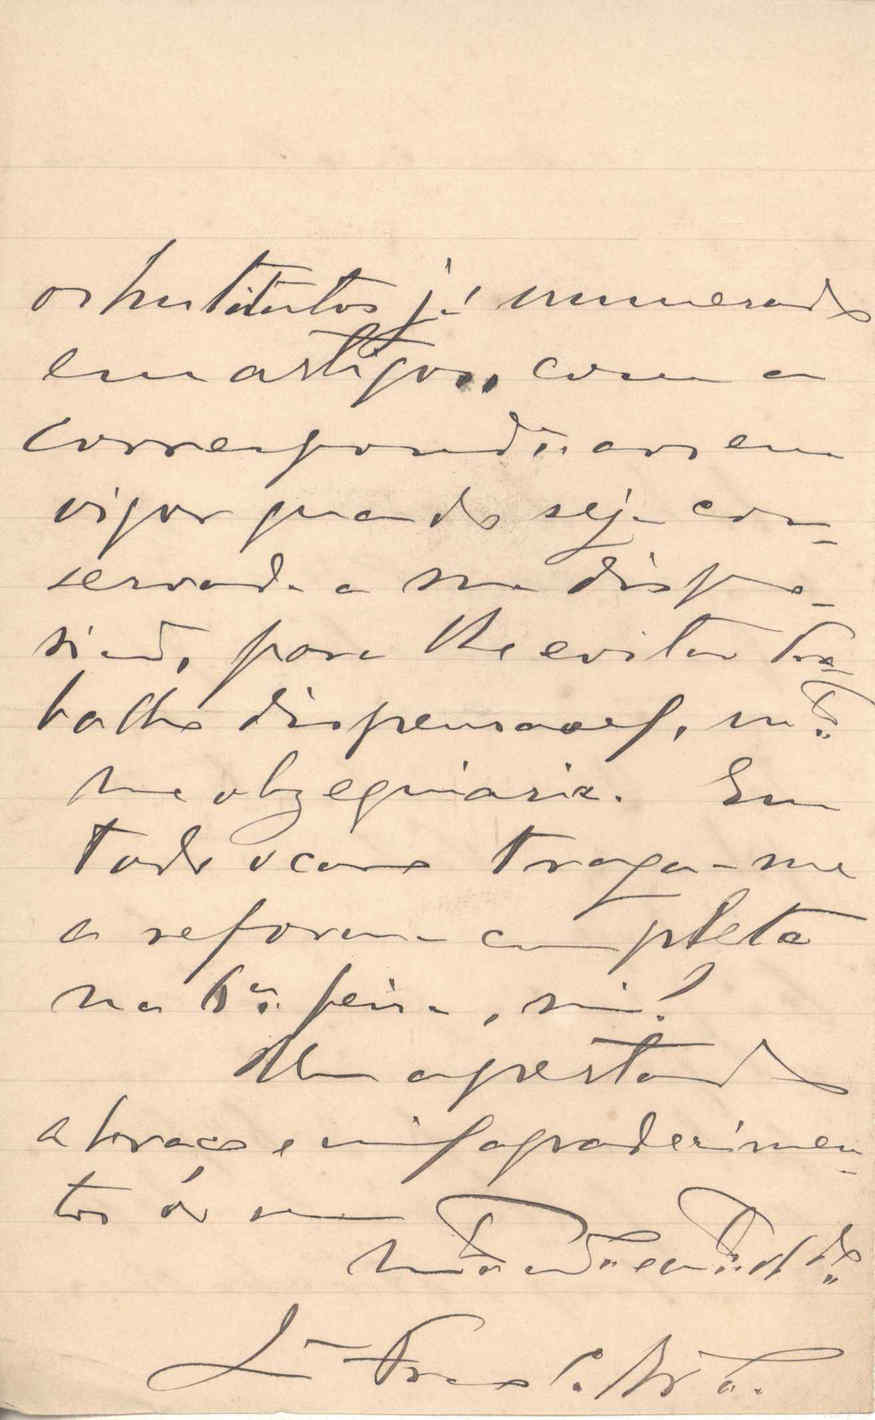 os Institutos já numerados
em artigos, com a
correspond.ª aos em
vigor quando seja con-
servada a sua dispo-
sição, para lhe evitar tra-
balho dispensavel, m.to
me obzequiaria. Em
todo o caso traga-me
a reforma completa
na 6.ª feira, sim?
Um apertado
abraço e mil agradecimen-
tos do seu